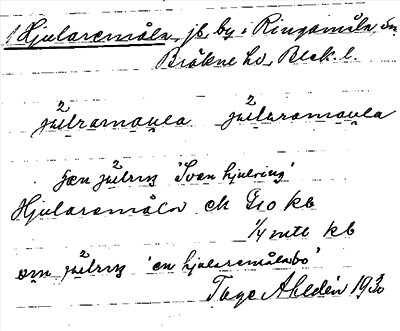 Hjularemåla, jb. by i Ringamåla sn
Bräkne hd, Blek. l.
jælramaula jælaramaula
Sven jælriŋ 'Sven hjulring'
Hjularemåla ch Gro kb
1/4 mtl kb
en jælriŋ 'en hjularemålabo'
Tage Ahldén 1930